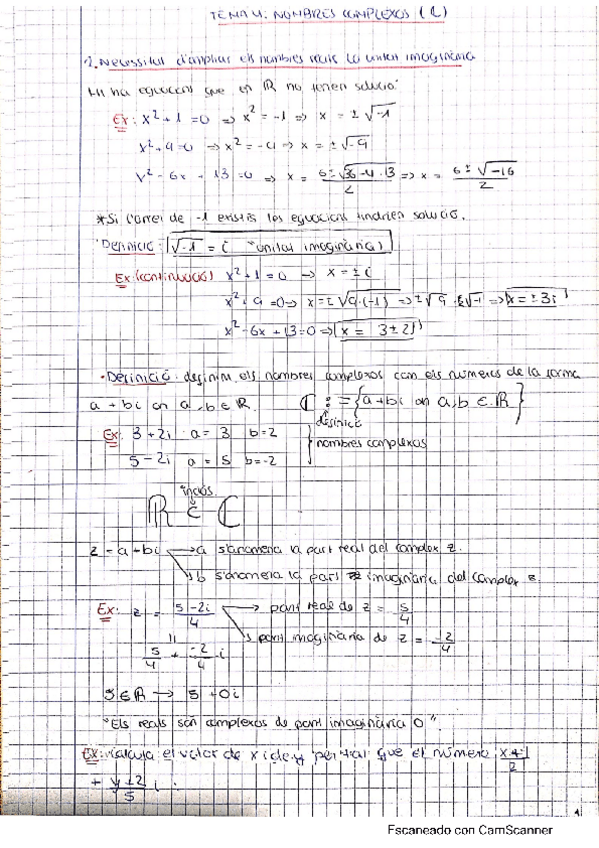 TEMA 4: NOMBRES COMPLEXOS (ℂ)
1. Necessitat d'ampliar els nombres reals. La unitat imaginària
Hi ha equacions que en ℝ no tenen solució:
Ex: x² + 1 = 0 ⇒ x² = -1 ⇒ x = ±√-1
x² + 9 = 0 → x² = -9 → x = ±√-9
x² - 6x + 13 = 0 ⇒ x = (6 ± √36-4·13)/2 ⇒ x = (6 ± √-16)/2
*Si l'arrel de -1 existís les equacions tindrien solució.
Definició: √-1 = i "unitat imaginària"
Ex (continuació) x² + 1 = 0 → x = ± i
x² + 9 = 0 → x = ±√9·(-1) ⇒ ±√9 · √-1 ⇒ x = ± 3i
x² - 6x + 13 = 0 ⇒ x = 3 ± 2i
· Definició: definim els nombres complexos com els números de la forma
a + bi on a, b ∈ ℝ. ℂ := {a + bi on a, b ∈ ℝ}
definició
Ex: 3 + 2i a = 3 b = 2
nombres complexos
5 - 2i a = 5 b = -2
inclòs
ℝ ⊂ ℂ
z = a + bi → a s'anomena la part real del complex z.
↘ b s'anomena la part imaginària del complex z.
Ex: z = (5 - 2i)/4 → part real de z = 5/4
↘ part imaginària de z = -2/4
5/4 + -2/4 i
5 ∈ ℝ → 5 + 0i
"Els reals són complexos de part imaginària 0"
Ex: calcula el valor de x i de y per tal que el número: (x+1)/2
+ (y+2)/5 i :
Escaneado con CamScanner